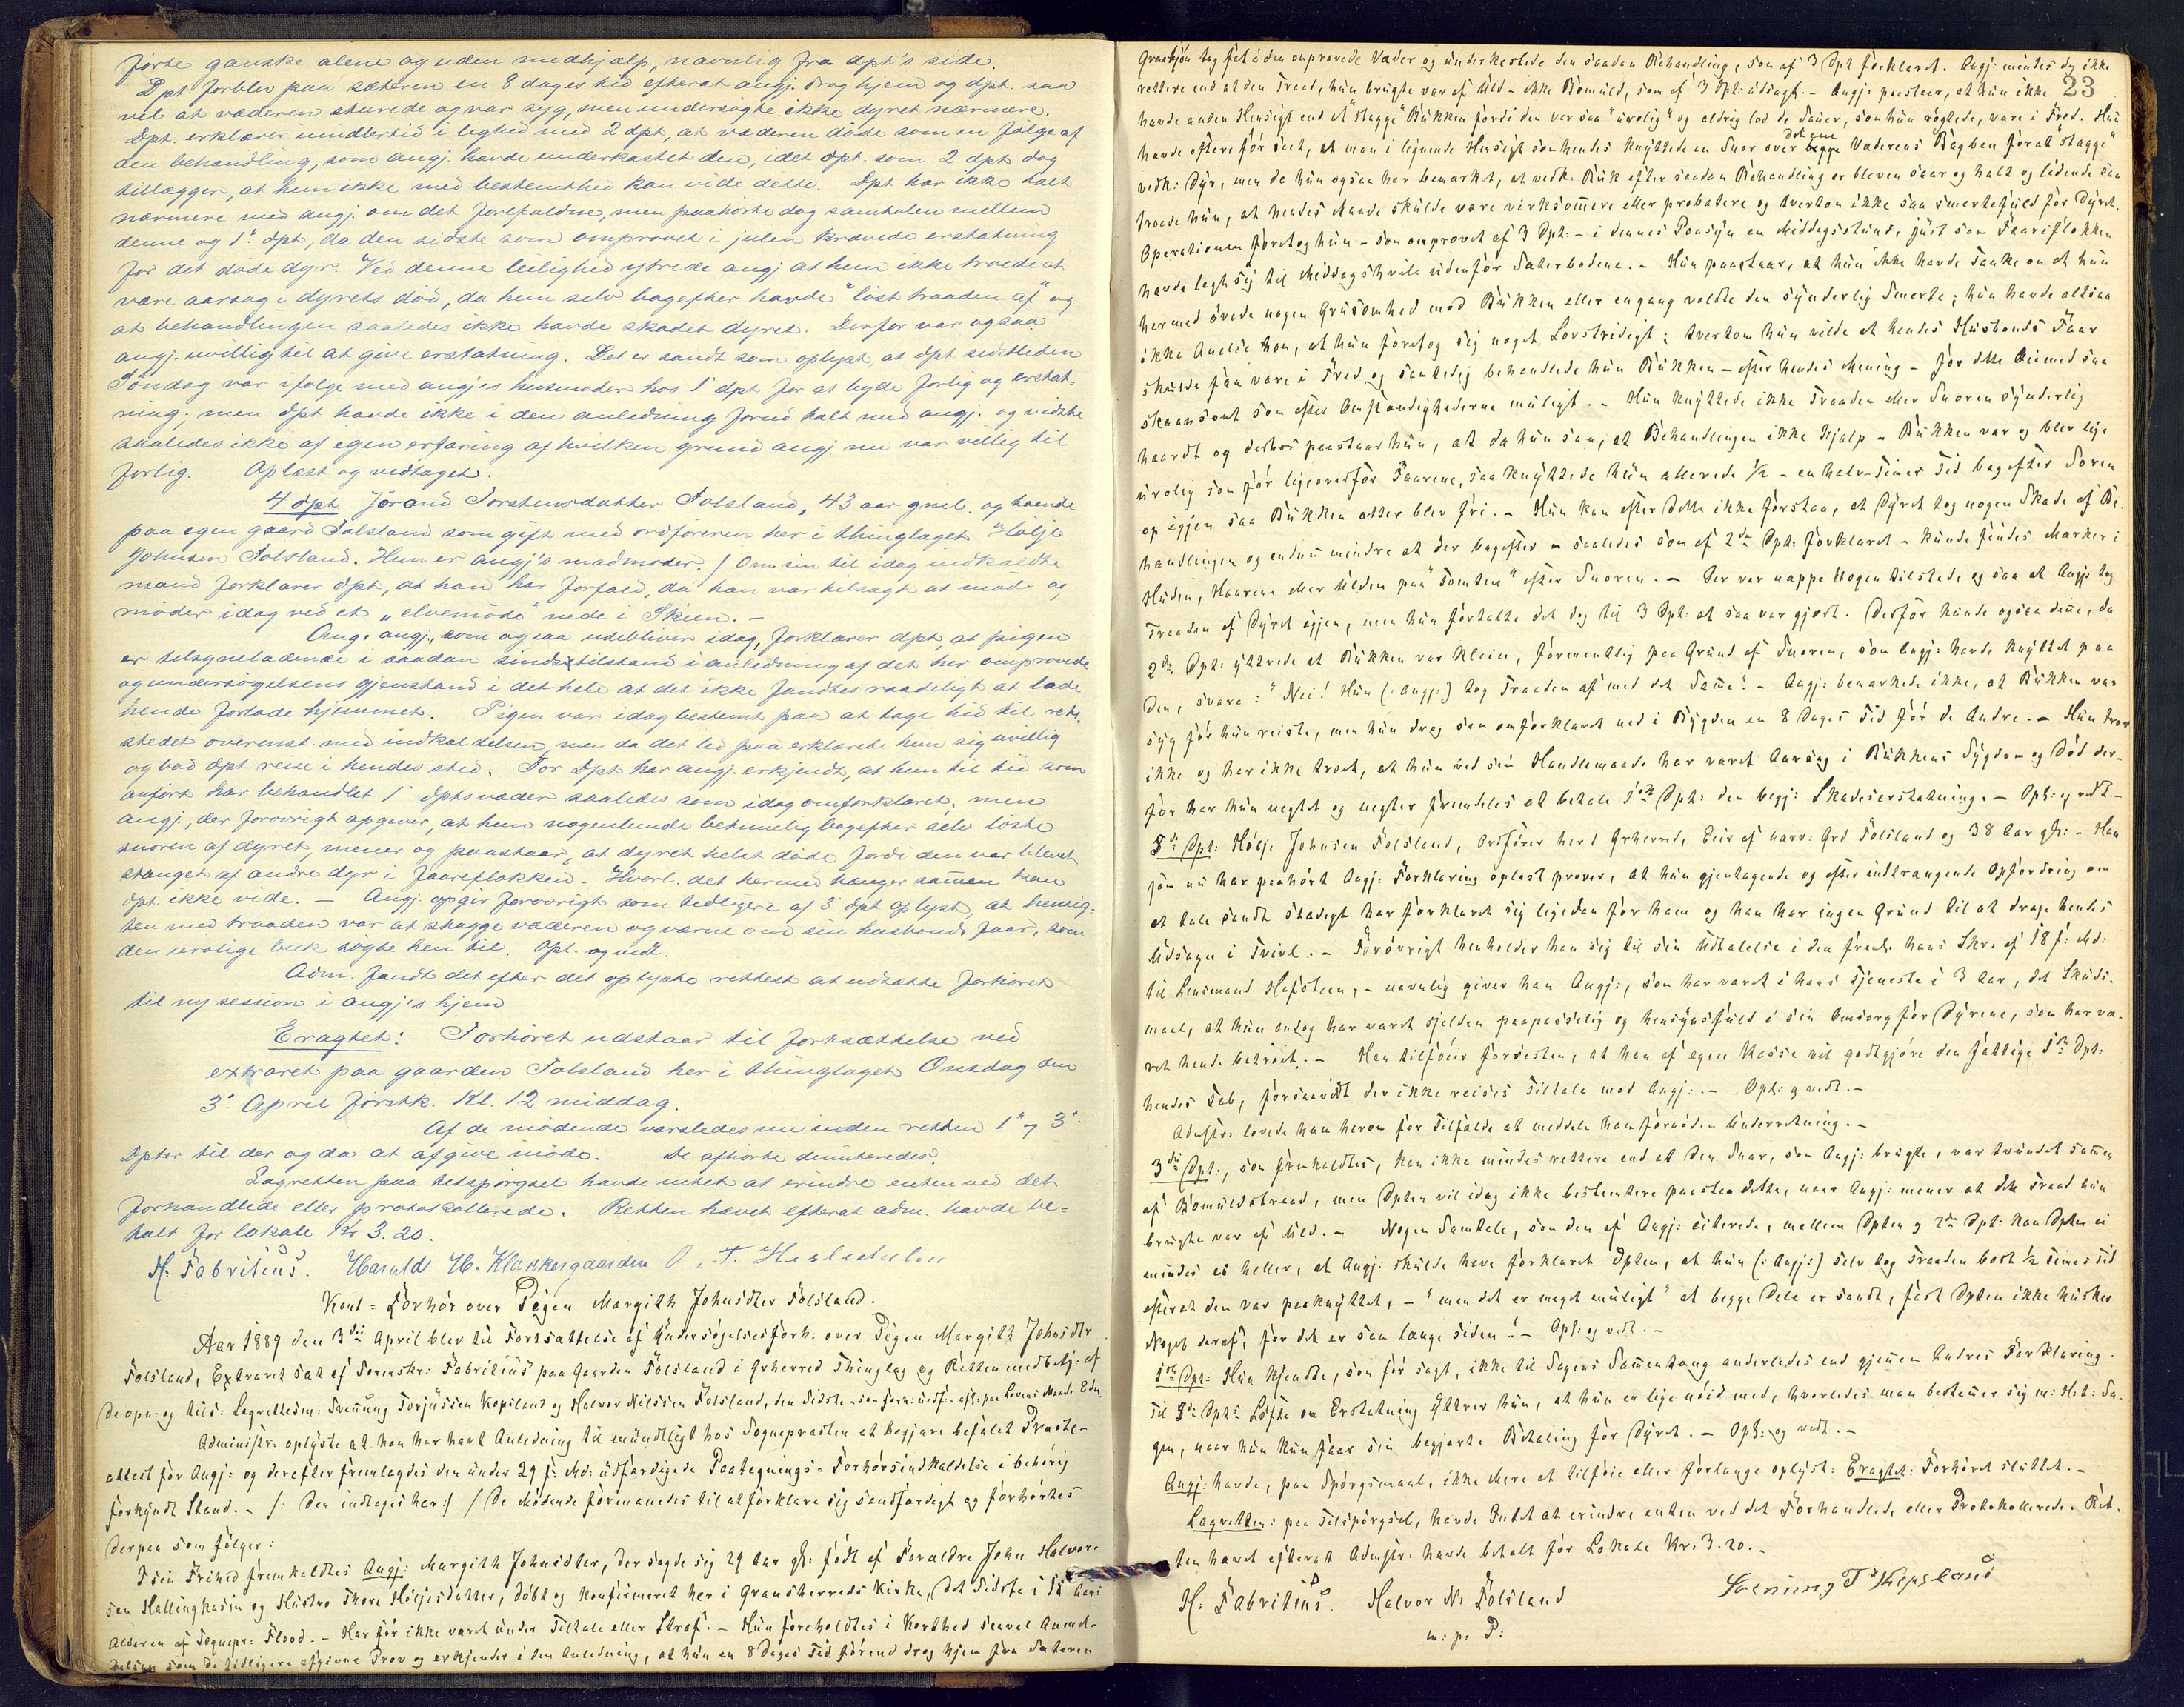 førte ganske alene og uden medhjælp, navnlig fra dpt's side.
Dpt forblev paa sæteren en 8 dages tid efterat angj. drog hjem og dpt. saa
vel at væderen sturede og var syg, men undersøgte ikke dyret nærmere.
Dpt. erklærer imidlertid i lighed med 2 dpt, at væderen døde som en følge af
den behandling, som angj. havde underkastet den, idet dpt. som 2 dpt dog
tillægger, at hun ikke med bestemthed kan vide dette. Dpt har ikke talt
nærmere med angj. om det forefaldne, men paahørte dog samtalen mellem
denne og 1' dpt, da den sidste som omprovet i julen krævede erstatning
for det døde dyr. Ved denne leilighed ytrede angj at hun ikke troede at
være aarsag i dyrets død, da hun selv bagefter havde "løst traaden af" og
at behandlingen saaledes ikke havde skadet dyret. Derfor var ogsaa
angj. uvillig til at give erstatning. Det er sandt som oplyst, at dpt sidstleden
Søndag var ifølge med angj's husmoder hos 1' dpt for at byde forlig og erstat=
ning; men dpt havde ikke i den anledning forud talt med angj. og vidste
saaledes ikke af egen erfaring af hvilken grund angj. nu var villig til
forlig. Oplæst og vedtaget.
4 dpt Jørand Torstensdatter Folsland, 43 aar gml. og boende
paa egen gaard Folsland som gift med ordføreren her i thinglaget Hølje
Johnsen Folsland. Hun er angj's madmoder. / Om sin til idag indkaldte
mand forklarer dpt, at han har forfald, da han var tilsagt at møde og
møder idag ved et "elvemøde" nede i Skien. -
Ang. angj., som ogsaa udebliver idag, forklarer dpt, at pigen
er tilsyneladende i saadan sindstilstand i anledning af det her omprovede
og undersøgelsens gjenstand i det hele at det ikke fandtes raadeligt at lade
hende forlade hjemmet. Pigen var idag bestemt paa at tage hid til rets-
stedet overenst. med indkaldelsen, men da det led paa erklærede hun sig uvillig
og bad dpt reise i hendes sted. For Dpt har angj. erkjendt, at hun til tid som
anført har behandlet 1' dpts væder saaledes som idag omforklaret, men
angj., der forøvrigt opgiver, at hun nogenlunde betimelig bagefter selv løste
snoren af dyret, mener og paastaar, at dyret helst døde fordi den var blevet
stanget af andre dyr i faareflokken. Hvorl. det hermed hænger sammen kan
dpt ikke vide. — Angj. opgir forøvrigt som tidligere af 3 dpt oplyst, at hensig-
ten med traaden var at stagge væderen og værne om sin husbonds faar, som
den urolige buk søgte hen til. Opl. og vedt.
Adm. fandt det efter det oplyste rettest at udsætte forhøret
til ny session i angj's hjem
Eragtet: Forhøret udstaar til fortsættelse ved
extraret paa gaarden Folsland her i thinglaget Onsdag den
3' April førstk. Kl. 12 middag.
Af de mødende varsledes nu inden retten 1' og 3'
Dpter til der og da at afgive møde. De afhørte dimiteredes.
Lagretten paa tilspørgsel havde intet at erindre enten ved det
forhandlede eller protokollerede. Retten hævet efterat adm. havde be=
talt for lokale Kr 3.20.
H. Fabritius. Harald H. Klankergaarden
Kont = Forhør over Pigen Margith Johnsdter Folsland.
Aar 1889 den 3die April blev til Fortsættelse af Undersøgelsesforh: over Pigen Margith Johnsdtr
Folsland, Extraret sat af Sorenskr: Fabritius paa Gaarden Folsland i Grherred Thinglag og Retten medbetj: af
de opn: og tils: Lagrettesm: Svennung Torjussen Kopsland og Halvor Nilssen Folsland, den Sidste – som form: udf: – efs: paa Lovens Maade Edn.
Administr. oplyste at han har havt Anledning til mundtligt hos Sognepræsten at begjære befalet Præste-
attest for Angj: og derefter fremlagdes den under 29 f: Md: udfærdigede Paategnings = Forhørsindkaldelse i behørig
forkyndt Stand. - /: Den indtages her:/ / De Mødende formanedes til at forklare sig sandfærdigt og forhørtes
derpaa som følger:
I sin Frihed fremkaldtes Angj: Margith Johnsdtter, der sagde sig 29 Aar gl: født af Forældre John Halvor-
sen Hallingkasin og Hustro Thore Høljesdatter, døbt og konfirmeret her i Gransherreds Kirke, det Sidste i 15 Aars
Alderen af Sognepr: Flood. - Har før ikke været under Tiltale eller Straf. - Hun foreholdtes i Korthed saavel Anmel-
delsen som de tidligere afgivne Prov og erkjender i den Anledning, at hun en 8 Dages Tid førend drog hjem fra Sæteren
23
Grasbjøn tog fat i den omprovede Væder og underkastede den saadan Behandling, som af 3 Dpt forklaret. Angj: mindes dog ikke
rettere end at den Traad, hun brugte var af Uld – ikke Bomuld, som af 3 Dpt: udsagt. – Angj: paastaar, at hun ikke
havde anden Hensigt end at "stagge" Bukken fordi den var saa "urolig" og aldrig lod de Sauer, som hun røgtede, være i Fred. Hun
havde oftere før seet, at man i lignende Hensigt som hendes knyttede en Snor over det ene begge Væderens Bagben for at "stagge"
vedk: Dyr, men da hun ogsaa har bemærket, at vedk: Buk efter saadan Behandling er bleven saar og halt og lidende saa
troede hun, at hendes Maade skulde være virksommere eller probatere og tvertom ikke saa smertefuld for Dyret.
Operationen foretog hun – som omprovet af 3 Dpt: – i dennes Paasyn en Middagsstund, just som Faareflokken
havde lagt sig til Middagshvile udenfor Sæterbodene. – Hun paastaar, at hun ikke havde Tanke om at hun
hermed øvede nogen Grusomhed mod Bukken eller engang voldte den synderlig Smerte; hun havde altsaa
ikke Anelse om, at hun foretog sig noget Lovstridigt; tvertom hun vilde at hendes Husbonds Faar
skulde faa være i Fred og samtidig behandlede hun Bukken – efter hendes Mening – for dette Øiemed saa
skaansomt som efter Omstændighederne muligt. – Hun knyttede ikke Traaden eller Snoren synderlig
haardt og derhos paastaar hun, at da hun saa, at Behandlingen ikke hjalp – Bukken var og blev lige
urolig som før ligeoverfor Faarene, saa knyttede hun allerede 1/2 – en halv – Times Tid bagefter Snoren
op igjen saa Bukken atter blev fri. – Hun kan efter dette ikke forstaa, at Dyret tog nogen Skade af Be-
handlingen og endnu mindre at der bagefter – saaledes som af 2den Dpt: forklaret – kunde findes Mærker i
Huden, Haarene eller Ulden paa "Tomten" efter Snoren. – Der var nappe Nogen tilstede og saa at Angj: tog
Traaden af Dyret igjen, men hun fortalte det dog til 3 Dpt: at saa var gjort. Derfor kunde ogsaa denne, da
2den Dpt: yttrede at Bukken var klein, formentlig paa Grund af Snoren, som Angj: havde knyttet paa
den, svare: "Nei! Hun (: Angj:) tog Traaden af med det Samme". – Angj: bemærkede ikke, at Bukken var
syg før hun reiste, men hun drog som omforklaret ned i Bygden en 8 Dages Tid før de Andre. – Hun tror
ikke og har ikke troet, at hun ved sin Handlemaade har været Aarsag i Bukkens Sygdom og Død der-
for har hun negtet og negter fremdeles at betale 1ste Dpt: den begj: Skadeserstatning. – Opl: og vedt. –
5te Dpt: Hølje Johnsen Folsland, Ordfører her i Grherred, Eier af nævn: Grd Folsland og 38 Aar gl: – Han
som nu har paahørt Angj: Forklaring oplæst prover, at hun gjentagende og efter indtrængende Opfordring om
at tale Sandt stadigt har forklaret sig ligedan for ham og han har ingen Grund til at drage hendes
Udsagn i Tvivl. – Forøvrigt henholder han sig til sin Udtalelse i den freml: hans Skr. af 18 f: Md:
til Lensmand Hofsteen, – navnlig giver han Angj:, som har været i hans Tjeneste i 3 Aar, det Skuds-
maal, at hun endog har været sjelden paapasselig og hensynsfuld i sin Omsorg for Dyrene, som har væ-
ret hende betroet. – Han tilføier forresten, at han af egen Kasse vil godtgjøre den fattige 1ste Dpt:
hendes Tab, forsaavidt der ikke reises Tiltale mod Angj: – Opl: og vedt. –
Admstr: lovede ham herom for Tilfælde at meddele ham fornøden Underretning. –
3die Dpt:, som fremkaldtes, kan ikke mindes rettere end at den Snor, som Angj: brugte, var tvundet sammen
af Bomuldstraad, men Dpten vil idag ikke bestemtere paastaa dette, naar Angj: mener at den Traad hun
brugte var af Uld. – Nogen Samtale, som den af Angj: citerede, mellem Dpten og 2den Dpt: kan Dpten ei
mindes ei heller, at Angj: skulde have forklaret Dpten, at hun (: Angj:) selv tog Traaden bort 1/2 Times Tid
efterat den var paaknyttet, – "men det er meget muligt" at begge Dele er sandt, først Dpten ikke husker
Noget deraf, for det er saa længe siden". – Opl: og vedt. –
1ste Dpt: Hun kjendte, som før sagt, ikke til Sagens Sammenhæng anderledes end gjennem Andres Forklaring.
Til 5te Dpts Løfte om Erstatning yttrer hun, at hun er lige nøid med, hvorledes man bestemmer sig m: H: t: Sa-
gen, naar hun kun faar sin begjærte Betaling for Dyret. – Opl: og vedt. –
Angj: havde, paa Spørgsmaal, ikke Mere at tilføie eller forlange oplyst: Eragtet: Forhøret sluttet. –
Lagretten: paa Tilspørgsel, havde Intet at erindre enten ved det Forhandlede eller Protokollerede. Ret-
ten hævet efterat Admstr: havde betalt for Lokale Kr: 3.20. –
H. Fabritius. Halvor N. Folsland
m: p: P: